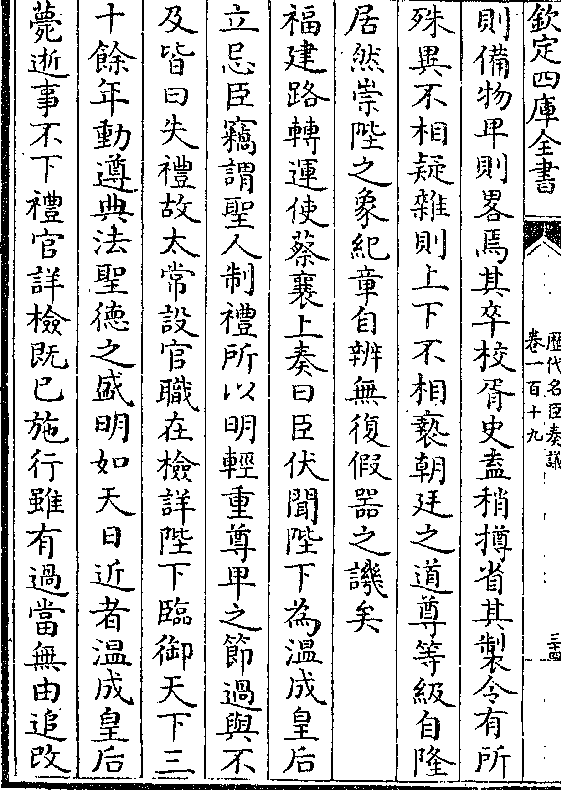 欽定四庫全書
歷代名臣奏議
卷一百十九
三十四
則備物卑則畧焉其卒校胥史盍稍撙省其製令有所
殊異不相疑雜則上下不相褻朝廷之道尊等級自隆
居然崇陛之象紀章自辨無復假器之譏矣
福建路轉運使蔡襄上奏曰臣伏聞陛下為温成皇后
立忌臣竊謂聖人制禮所以明輕重尊卑之節過與不
及皆曰失禮故太常設官職在檢詳陛下臨御天下三
十餘年動遵典法聖德之盛明如天日近者温成皇后
薨逝事不下禮官詳檢既已施行雖有過當無由追改